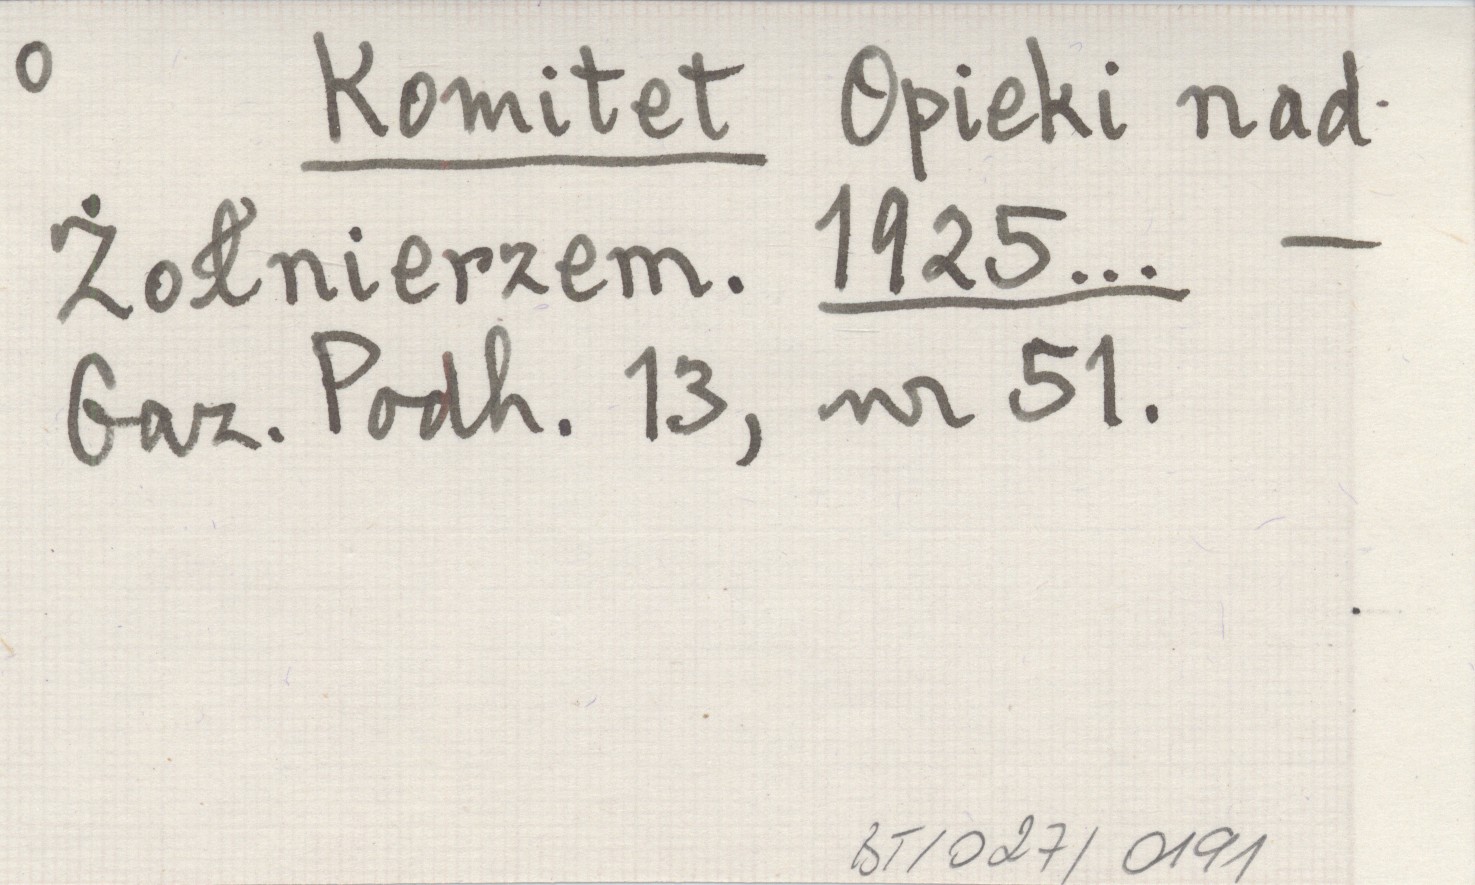 o Komitet Opieki nad
Żołnierzem. 1925... —
Gaz. Podh. 13, nr 51.
BT/027/0191